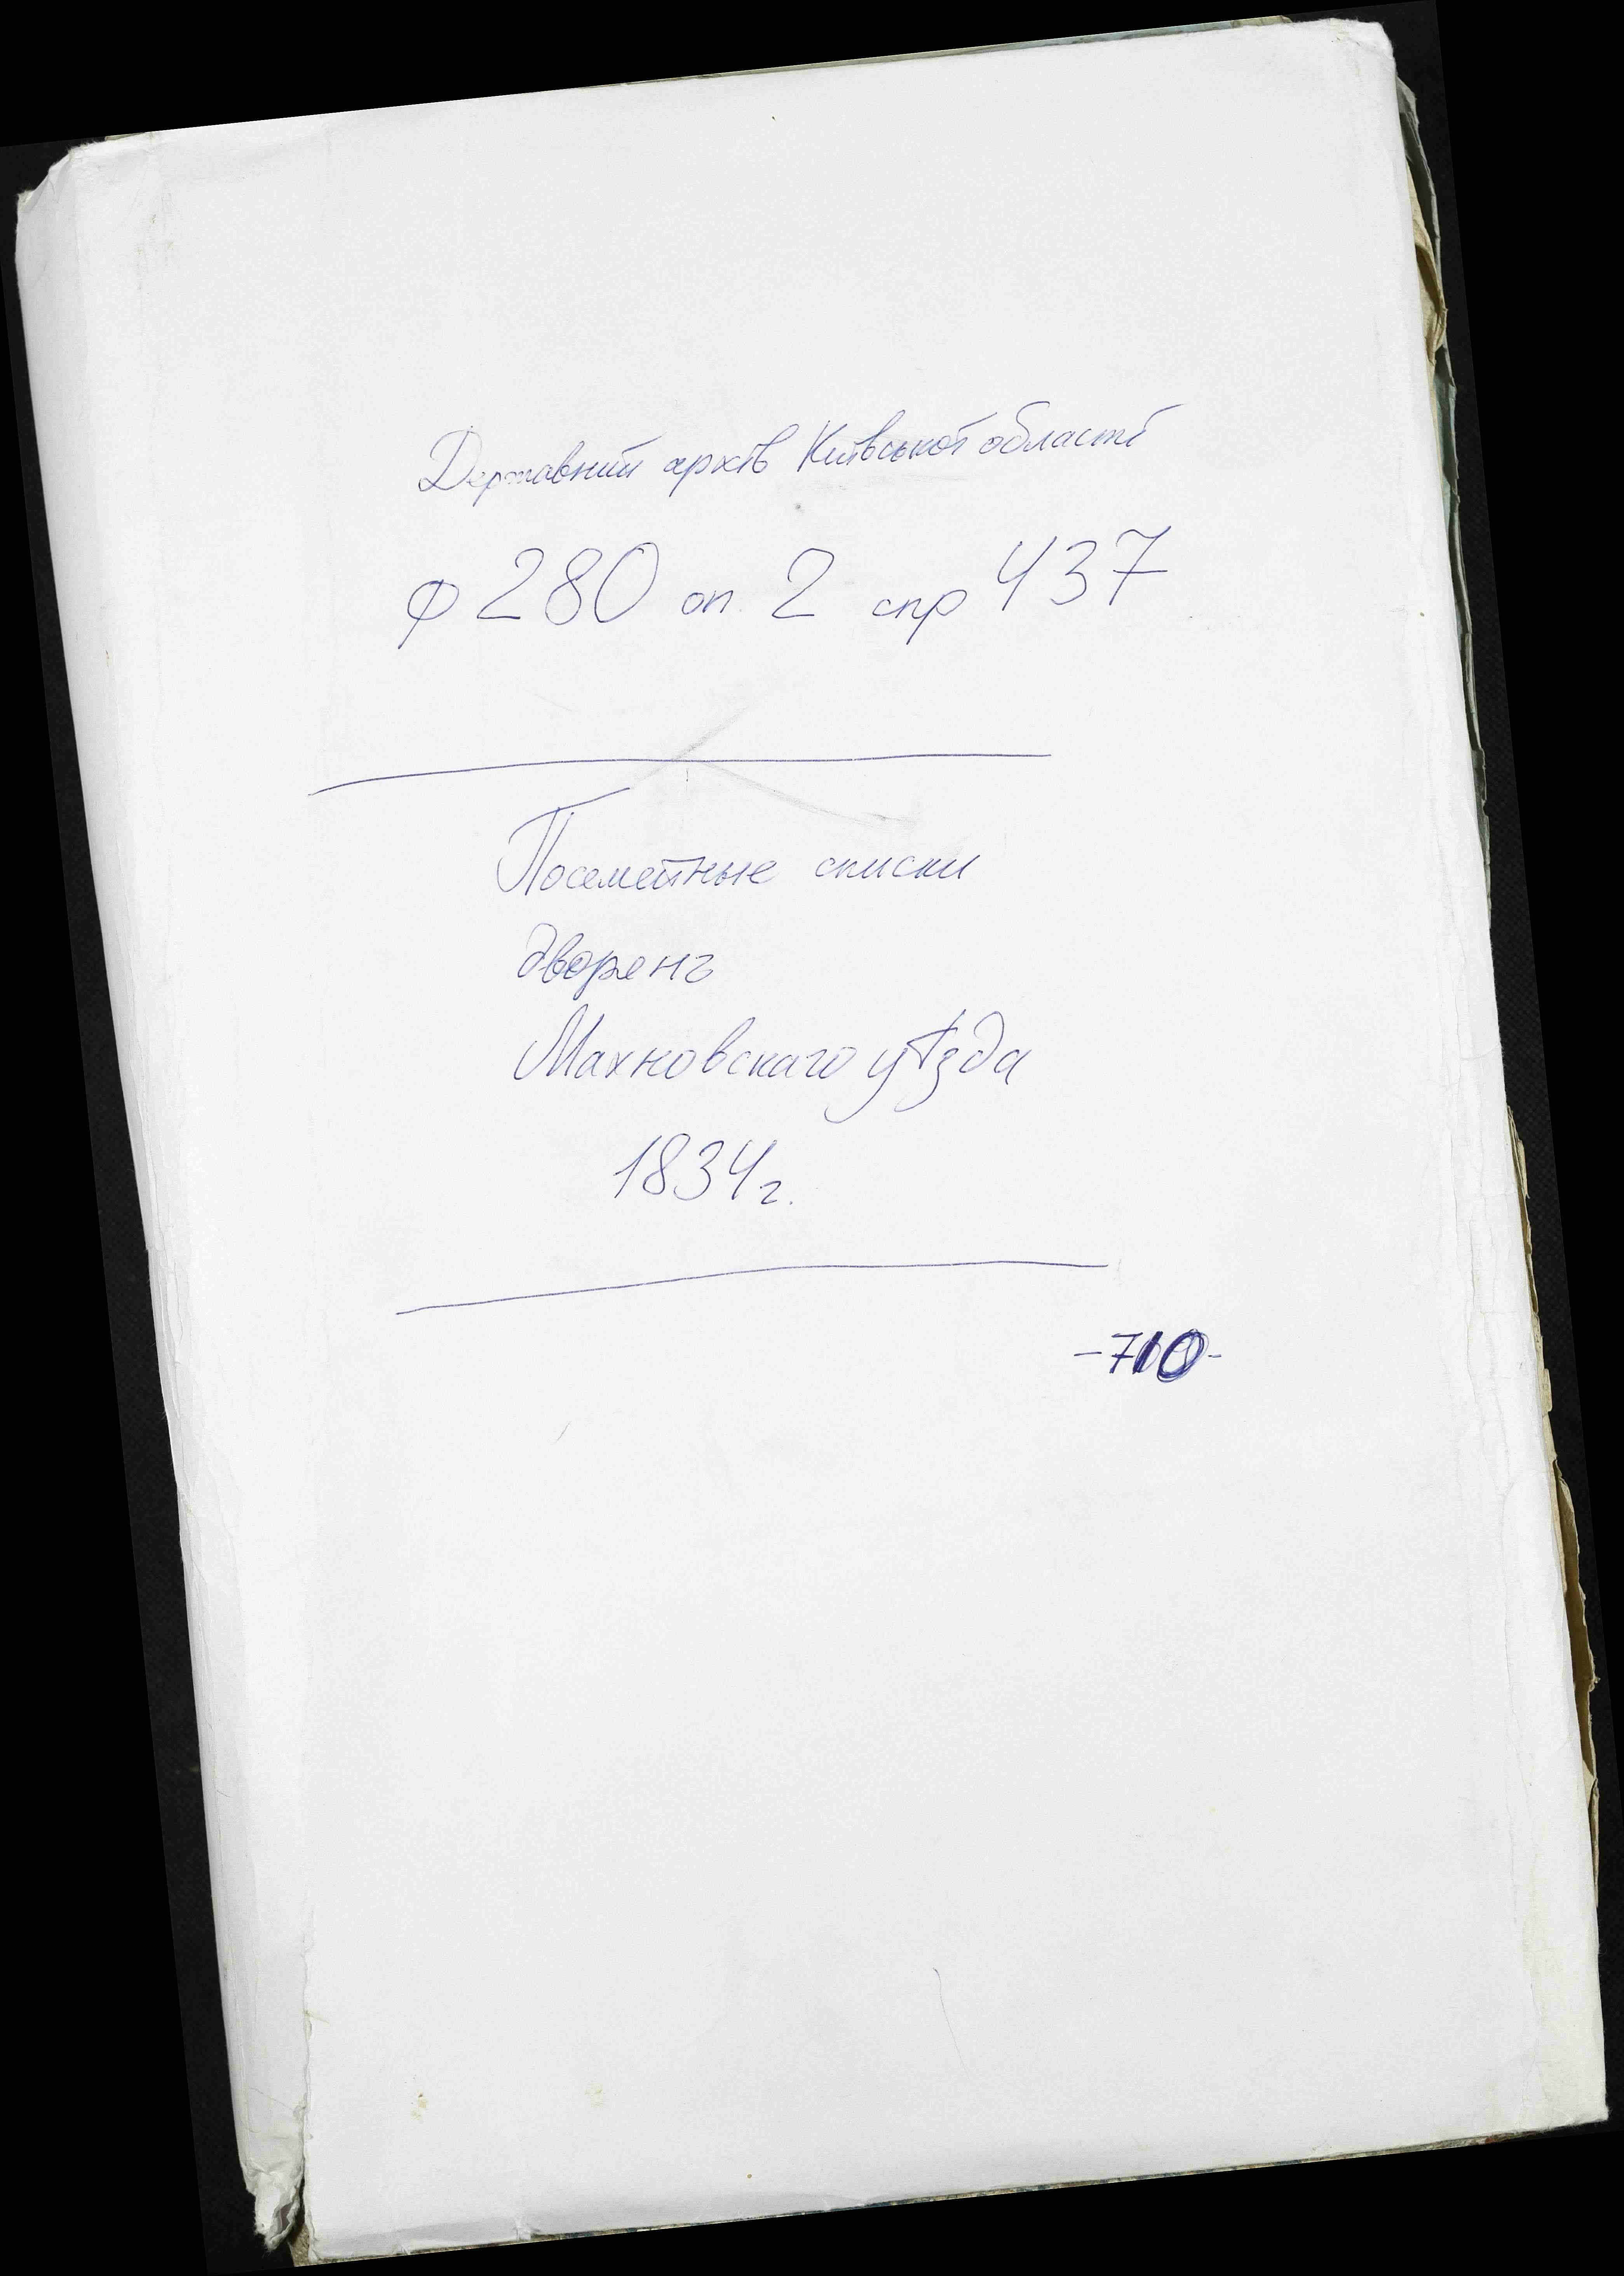 Державний архів Київської області
ф 280 оп. 2 спр 437
Посемейные списки
дворянъ
Махновскаго уѣзда
1834 г.
-710-